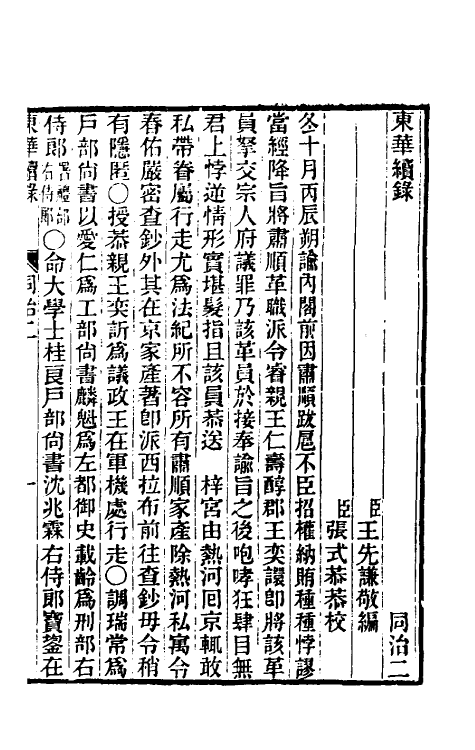 東華續錄　同治二
臣王先謙敬編
臣張式恭恭校
冬十月丙辰朔諭內閣前因肅順跋扈不臣招權納賄種種悖謬
當經降旨將肅順革職派令睿親王仁壽醇郡王奕譞卽將該革
員拏交宗人府議罪乃該革員於接奉諭旨之後咆哮狂肆目無
君上悖逆情形實堪髮指且該員恭送　梓宮由熱河囘京輒敢
私帶眷屬行走尤爲法紀所不容所有肅順家產除熱河私寓令
春佑嚴密查鈔外其在京家產著卽派西拉布前往查鈔毋令稍
有隱匿〇授恭親王奕訢爲議政王在軍機處行走〇調瑞常爲
戶部尙書以愛仁爲工部尙書麟魁爲左都御史載齡爲刑部右
侍郎署禮部右侍郎〇命大學士桂良戶部尙書沈兆霖右侍郎寶鋆在
東華續錄　同治二　一